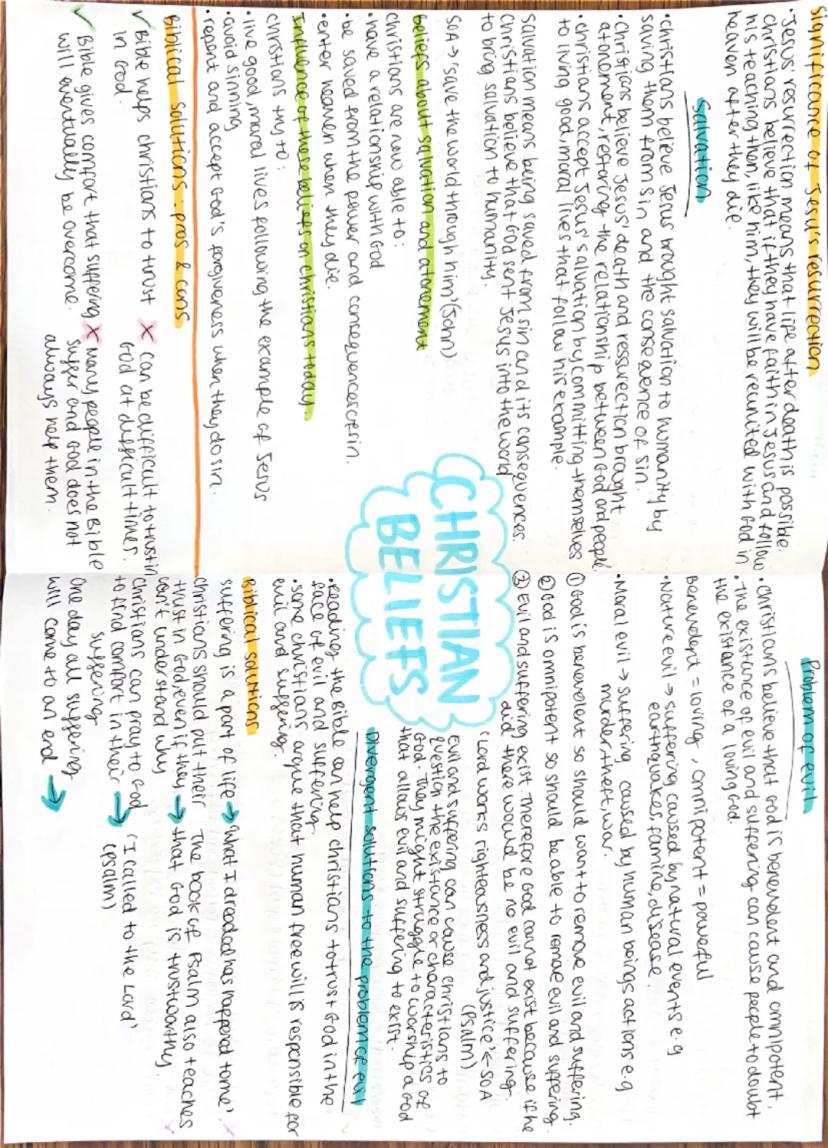 Significance of Jesu's resurrection
• Jesus' resurrection means that life after death is possible.
Christians believe that if they have faith in Jesus and follow
his teaching them, like him, they will be reunited with God in
heaven after they die.
Salvation
• christians believe Jesus brought salvation to humanity by
saving them from sin and the consequence of sin.
• Christians believe Jesus' death and ressurection brought
atonement, restoring the relationship between God and people.
• christians accept Jesus' salvation by committing themselves
to living good, moral lives that follow his example.
salvation means being saved from sin and its consequences.
Christians believe that God sent Jesus into the world
to bring salvation to humanity.
SOA → 'save the world through him' (John)
Beliefs about salvation and atonement
christians are now able to:
• have a relationship with God
• be saved from the power and consequences of sin.
• enter heaven when they die.
Influence of these beliefs on christians today.
christians try to:
• live good, moral lives following the example of Jesus
• avoid sinning
• repent and accept God's forgiveness when they do sin.
Biblical solutions - pros & cons
✓ Bible helps christians to trust
in God.
✓ Bible gives comfort that suffering
will eventually be overcome.
✗ Can be difficult to trust in
God at difficult times.
✗ Many people in the Bible
suffer and God does not
always help them.
CHRISTIAN
BELIEFS
Problem of evil
• Christians believe that God is benevolent and omnipotent.
• The existance of evil and suffering can cause people to doubt
the existance of a loving God.
Benevolent = loving, omnipotent = powerful
• Nature evil → suffering caused by natural events e.g
earthquakes, famine, disease.
• Moral evil → suffering caused by human beings actions e.g
murder, theft, war.
① God is benevolent so should want to remove evil and suffering.
② God is omnipotent so should be able to remove evil and suffering.
③ Evil and suffering exist. Therefore God cannot exist because if he
did there would be no evil and suffering.
'Lord works righteousness and justice' ← SOA
(Psalm)
Evil and suffering can cause christians to
question the existance or characteristics of
God. They might struggle to worship a God
that allows evil and suffering to exist.
Divergent solutions to the problem of evil
• Reading the Bible can help christians to trust God in the
face of evil and suffering.
• some christians argue that human free will is responsible for
evil and suffering.
Biblical solutions
suffering is a part of life → 'What I dreaded has happened to me'.
christians should put their
trust in God, even if they →
can't understand why
The book of Psalm also teaches
that God is trustworthy.
Christians can pray to God
to find comfort in their →
suffering
'I called to the Lord'
(Psalm)
One day all suffering
will come to an end →